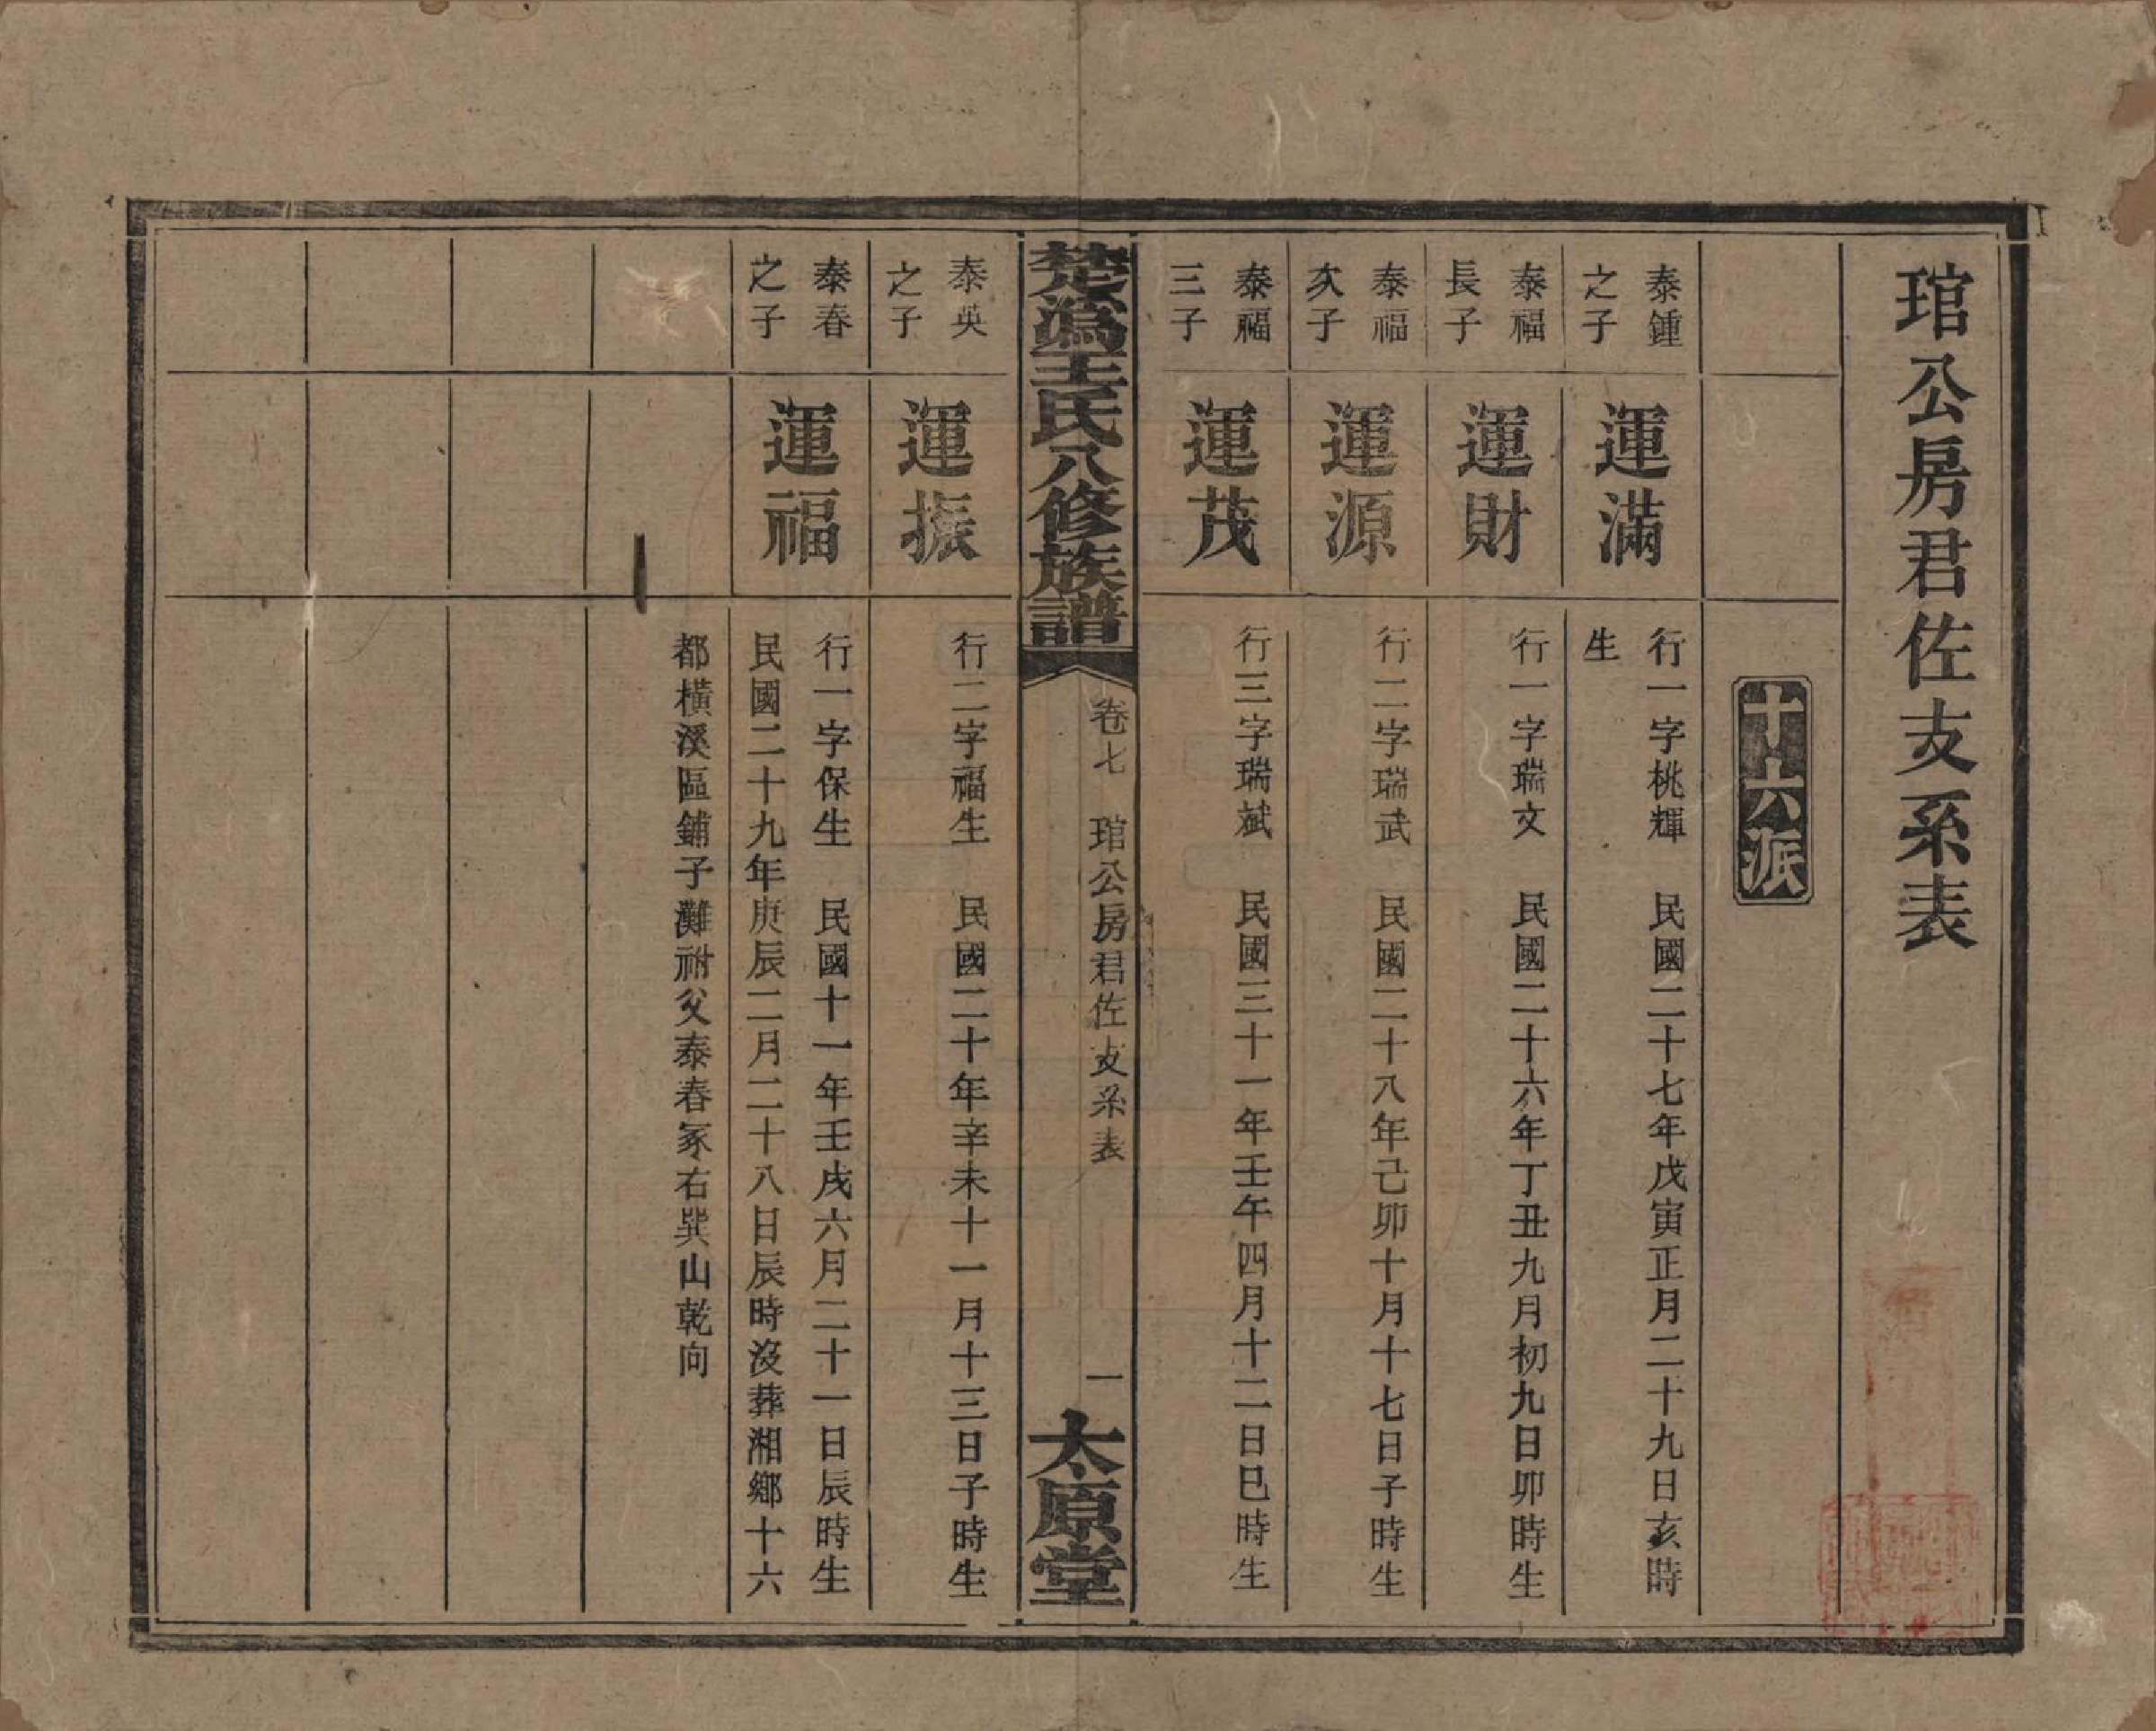 琯公房君佐支系表
十六派
泰鍾
之子
運滿
行一字桃輝　民國二十七年戊寅正月二十九日亥時
生
泰福
長子
運財
行一字瑞文　民國二十六年丁丑九月初九日卯時生
泰福
次子
運源
行二字瑞武　民國二十八年己卯十月十七日子時生
泰福
三子
運茂
行三字瑞斌　民國三十一年壬午四月十二日巳時生
楚溈王氏八修族譜
卷七　琯公房君佐支系表
一
太原堂
泰英
之子
運振
行二字福生　民國二十年辛未十一月十三日子時生
泰春
之子
運福
行一字保生　民國十一年壬戌六月二十一日辰時生
民國二十九年庚辰二月二十八日辰時沒葬湘鄉十六
都橫溪區鋪子灘祔父泰春冢右巽山乾向